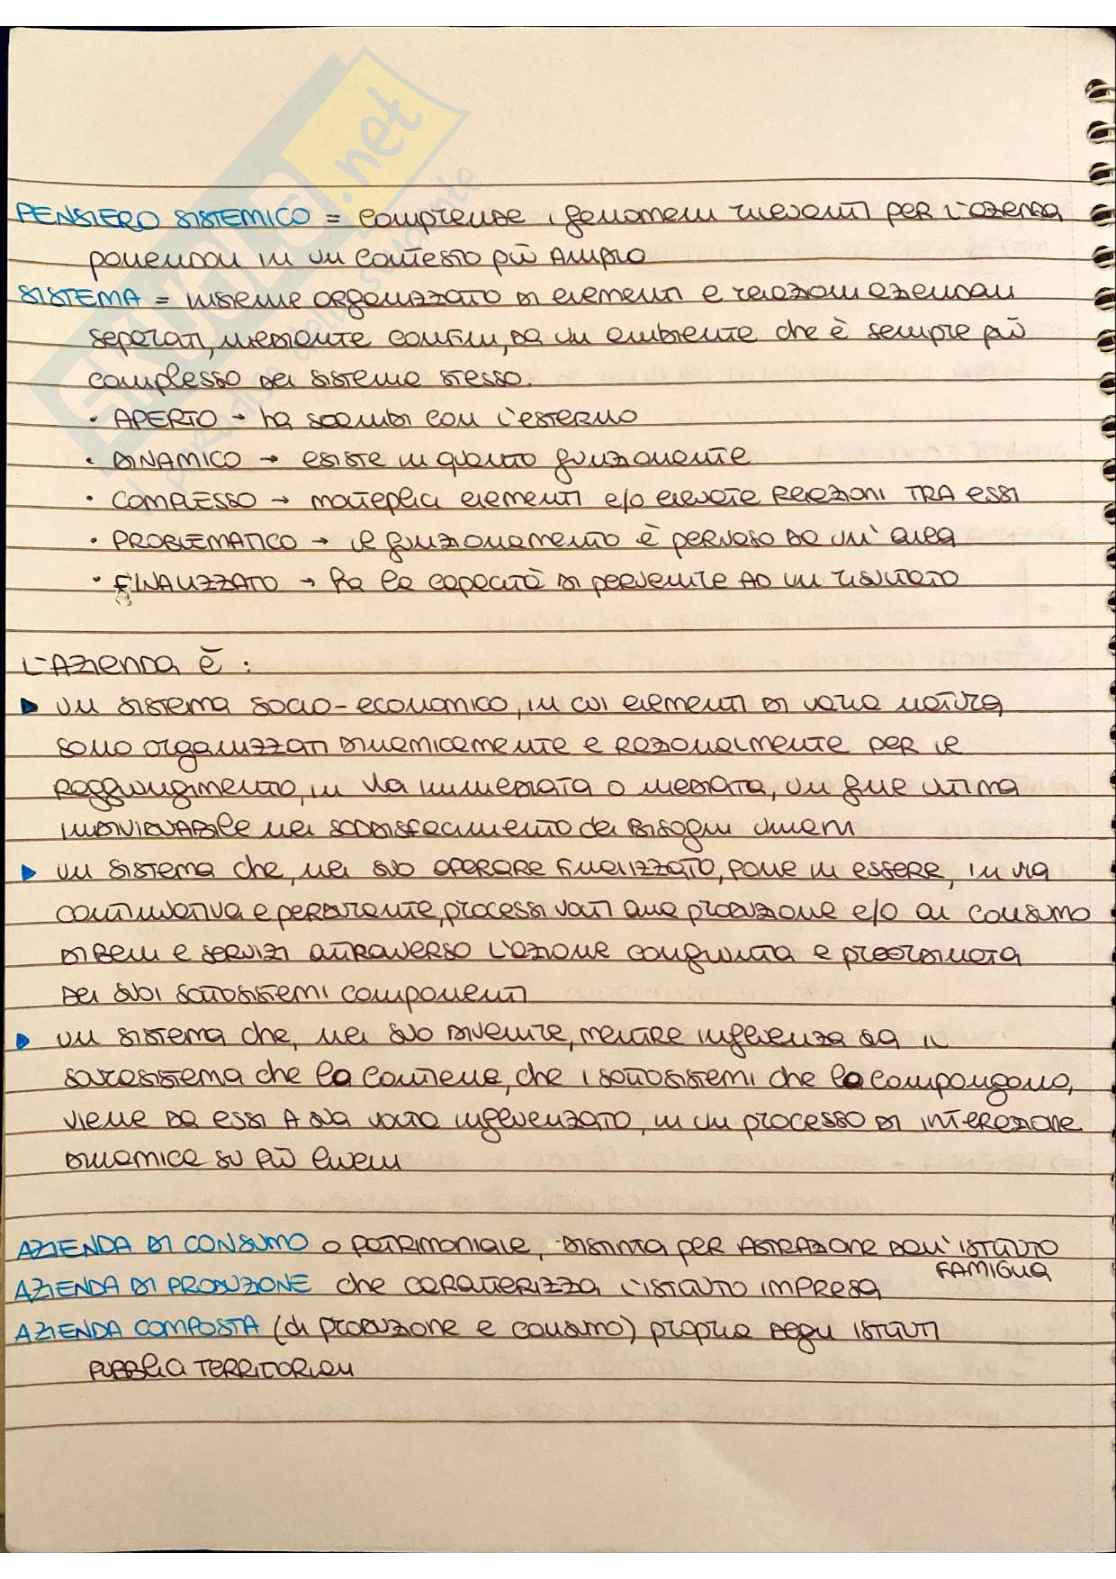 PENSIERO SISTEMICO = comprende i fenomeni rilevanti per l'azienda
ponendoli in un contesto più ampio
SISTEMA = insieme organizzato di elementi e relazioni aziendali
separati, mediante confini, da un ambiente che è sempre più
complesso del sistema stesso.
• APERTO → ha scambi con l'esterno
• DINAMICO → esiste in quanto funzionante
• COMPLESSO → molteplici elementi e/o elevate RELAZIONI TRA ESSI
• PROBLEMATICO → il funzionamento è pervaso da un' alea
• FINALIZZATO → ha la capacità di pervenire AD un risultato
L'AZIENDA È :
▶ un sistema socio-economico, in cui elementi di varia natura
sono organizzati dinamicamente e razionalmente per il
raggiungimento, in via immediata o mediata, un fine ultimo
INDIVIDUABILE nel soddisfacimento dei bisogni umani
▶ un sistema che, nel suo operare finalizzato, pone in essere, in via
continuativa e perdurante, processi volti alla produzione e/o al consumo
di beni e servizi attraverso l'azione congiunta e preordinata
dei suoi sottosistemi componenti
▶ un sistema che, nel suo divenire, mentre influenza sia il
sovrasistema che la contiene, che i sottosistemi che la compongono,
viene da essi A sua volta influenzato, in un processo di interazione
dinamica su più livelli
AZIENDA DI CONSUMO o patrimoniale, distinta per ASTRAZIONE dall' istituto
FAMIGLIA
AZIENDA DI PRODUZIONE che caratterizza l'istituto IMPRESA
AZIENDA COMPOSTA (di produzione e consumo) propria degli istituti
PUBBLICI TERRITORIALI
.net